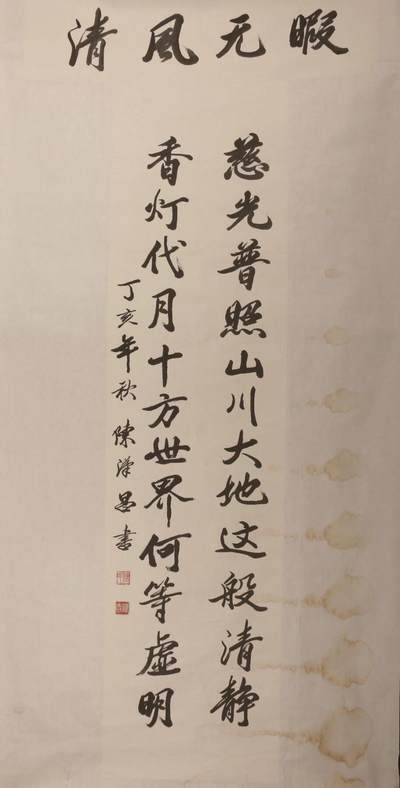 暇无风清
慈光普照山川大地这般清静
香灯代月十方世界何等虚明
丁亥年秋 陈泽书